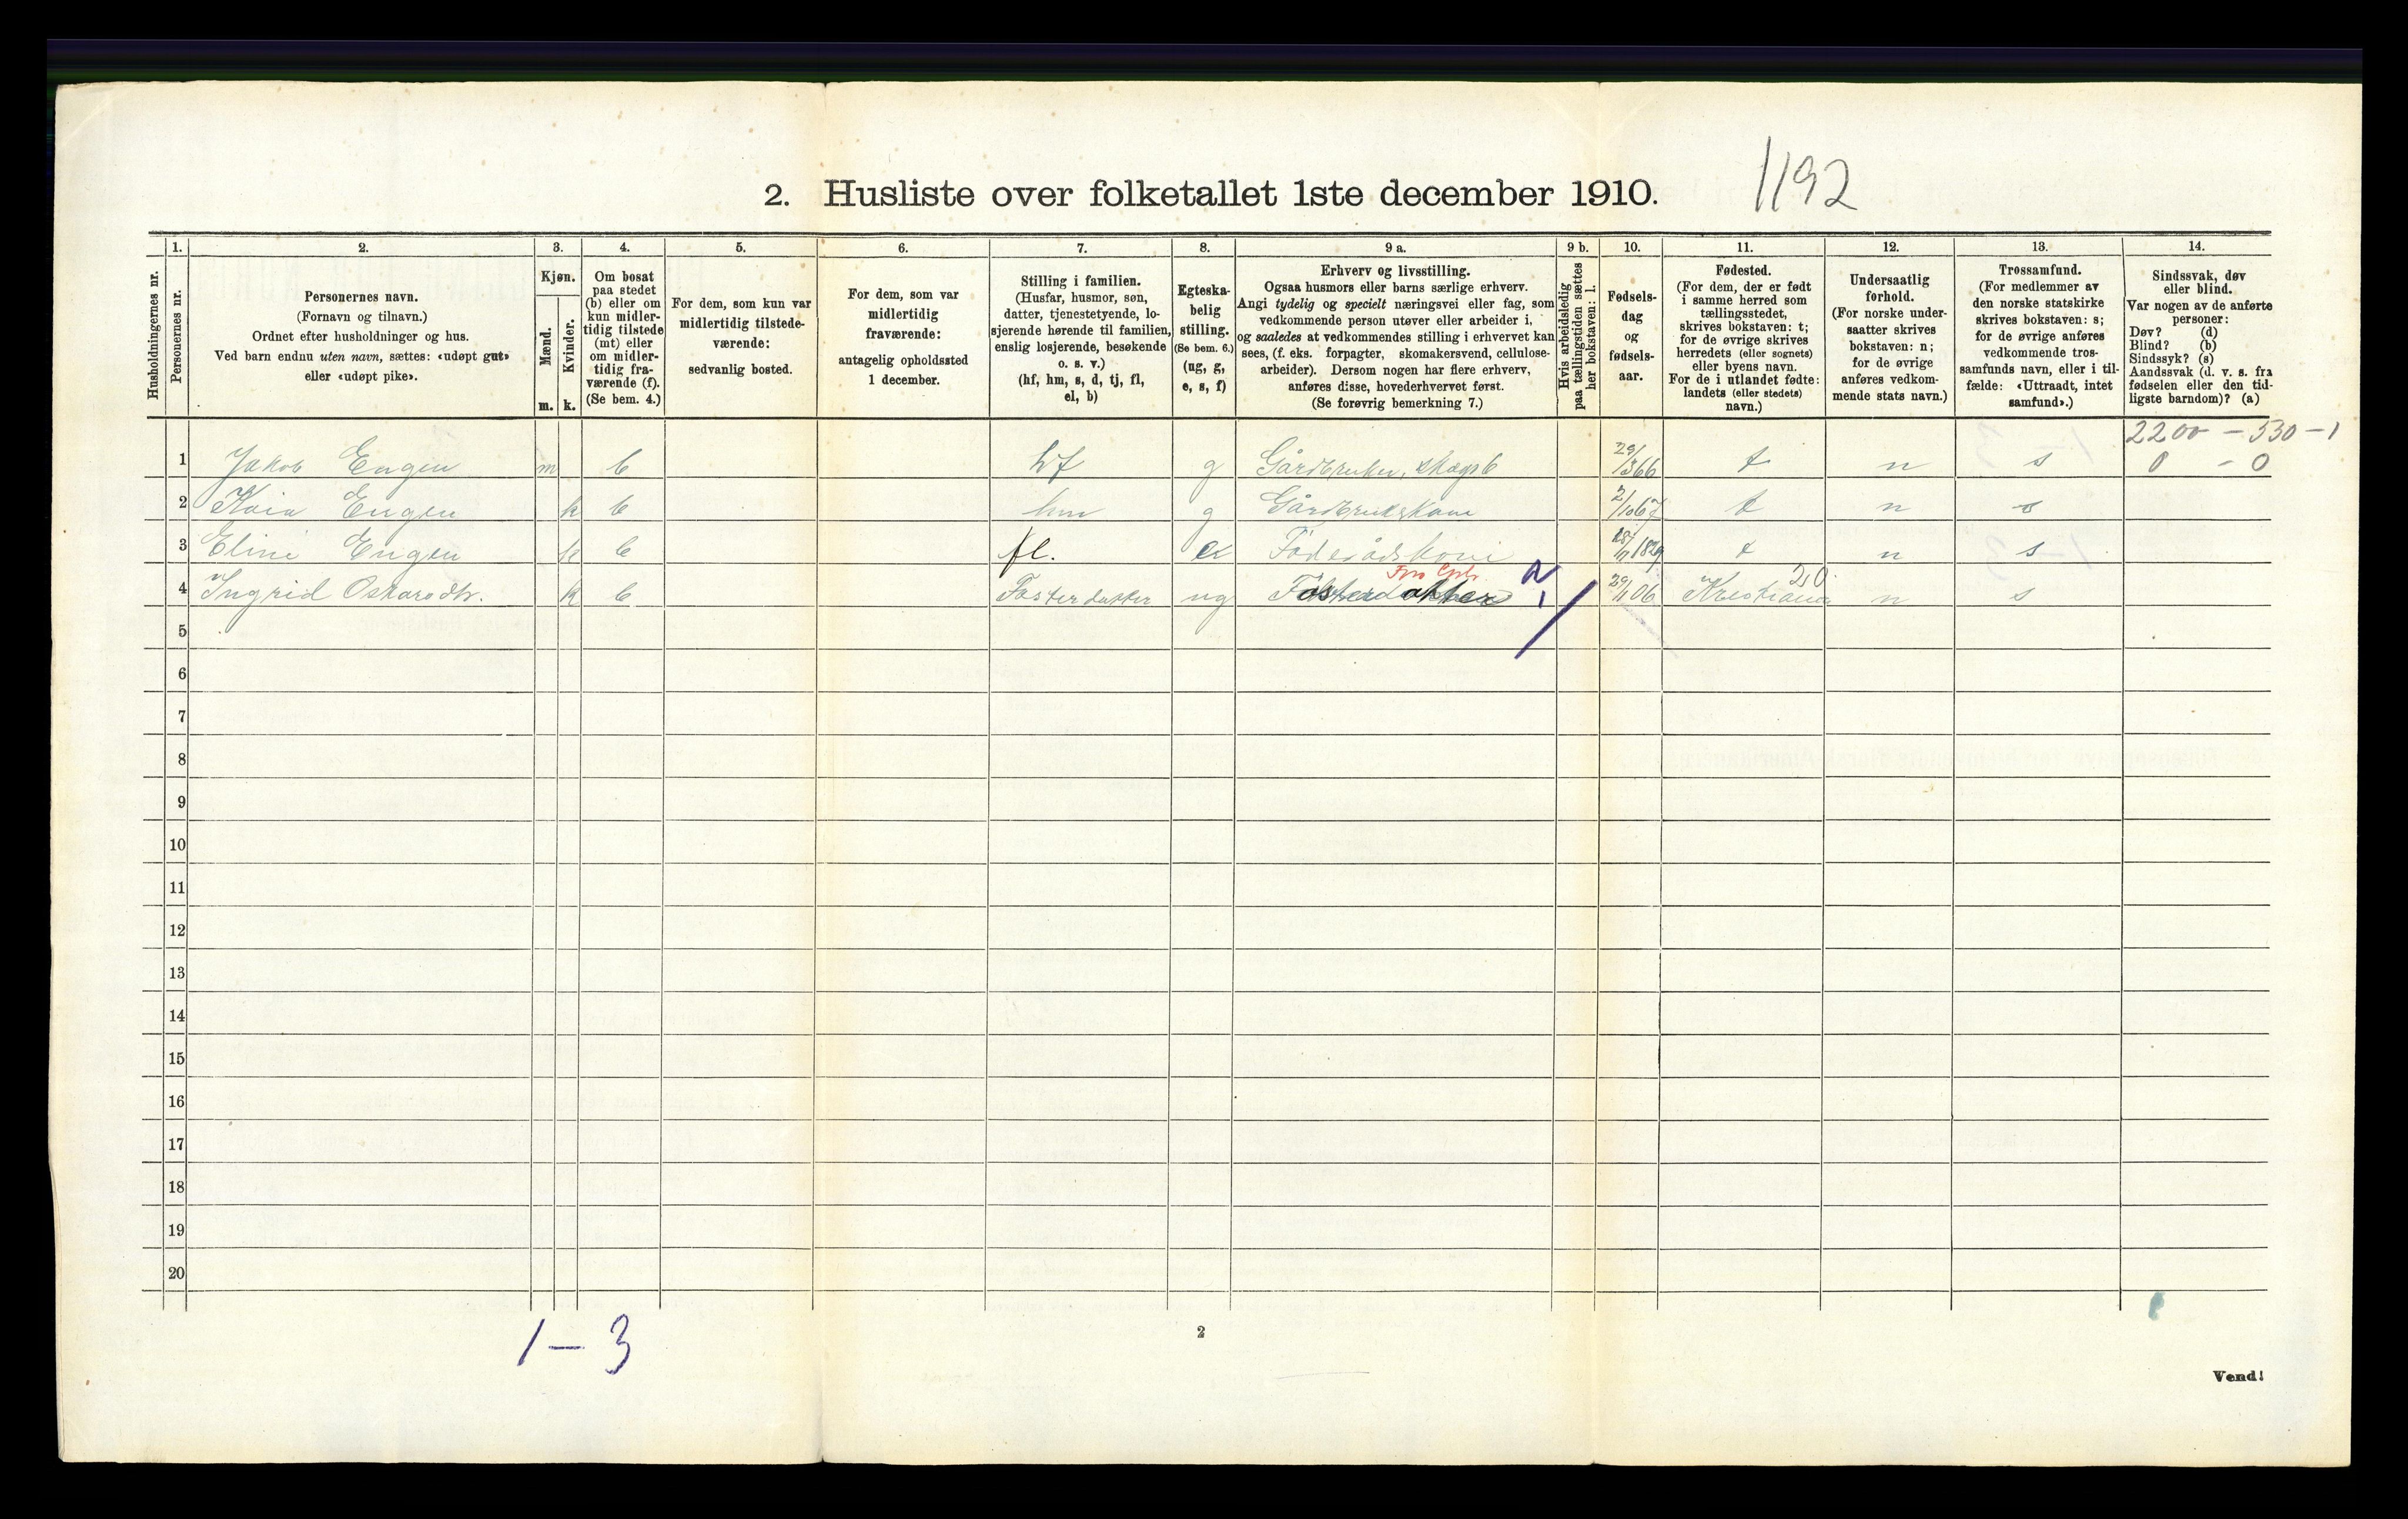 1192
2. Husliste over folketallet 1ste december 1910.
Husholdningernes nr.
1.
Personernes nr.
2.
Personernes navn.
(Fornavn og tilnavn.)
Ordnet efter husholdninger og hus.
Ved barn endnu uten navn, sættes: «udøpt gut»
eller «udøpt pike».
3.
Kjøn.
Mænd.
m.
Kvinder.
k.
4.
Om bosat
paa stedet
(b) eller om
kun midler-
tidig tilstede
(mt) eller
om midler-
tidig fra-
værende (f).
(Se bem. 4.)
5.
For dem, som kun var
midlertidig tilstede-
værende:
sedvanlig bosted.
6.
For dem, som var
midlertidig
fraværende:
antagelig opholdssted
1 december.
7.
Stilling i familien.
(Husfar, husmor, søn,
datter, tjenestetyende, lo-
sjerende hørende til familien,
enslig losjerende, besøkende
o. s. v.)
(hf, hm, s, d, tj, fl,
el, b)
8.
Egteska-
belig
stilling.
(Se bem. 6.)
(ug, g,
e, s, f)
9 a.
Erhverv og livsstilling.
Ogsaa husmors eller barns særlige erhverv.
Angi tydelig og specielt næringsvei eller fag, som
vedkommende person utøver eller arbeider i,
og saaledes at vedkommendes stilling i erhvervet kan
sees, (f. eks. forpagter, skomakersvend, cellulose-
arbeider). Dersom nogen har flere erhverv,
anføres disse, hovederhvervet først.
(Se forøvrig bemerkning 7.)
9 b.
Hvis arbeidsledig
paa tællingstiden sættes
her bokstaven: l.
10.
Fødsels-
dag
og
fødsels-
aar.
11.
Fødested.
(For dem, der er født
i samme herred som
tællingsstedet,
skrives bokstaven: t;
for de øvrige skrives
herredets (eller sognets)
eller byens navn.
For de i utlandet fødte:
landets (eller stedets)
navn.)
12.
Undersaatlig
forhold.
(For norske under-
saatter skrives
bokstaven: n;
for de øvrige
anføres vedkom-
mende stats navn.)
13.
Trossamfund.
(For medlemmer av
den norske statskirke
skrives bokstaven: s;
for de øvrige anføres
vedkommende tros-
samfunds navn, eller i til-
fælde: «Uttraadt, intet
samfund».)
14.
Sindssvak, døv
eller blind.
Var nogen av de anførte
personer:
Døv? (d)
Blind? (b)
Sindssyk? (s)
Aandssvak (d. v. s. fra
fødselen eller den tid-
ligste barndom)? (a)
2200 - 530 - 1
1 Jakob Engen m b hf g Gårdbruker, skogsb 29/3 66 t n s 0 - 0
2 Kaia Engen k b hm g Gårdbrukskone 2/10 67 t n s
3 Eline Engen k b fl. e Föderådskone 18/11 1829 t n s
4 Ingrid Oskarsdtr. k b Fosterdatter ug Fosterdatter 29/11 06 Kristiania n s
5
6
7
8
9
10
11
12
13
14
15
16
17
18
19
20
1 - 3
2
Vend!